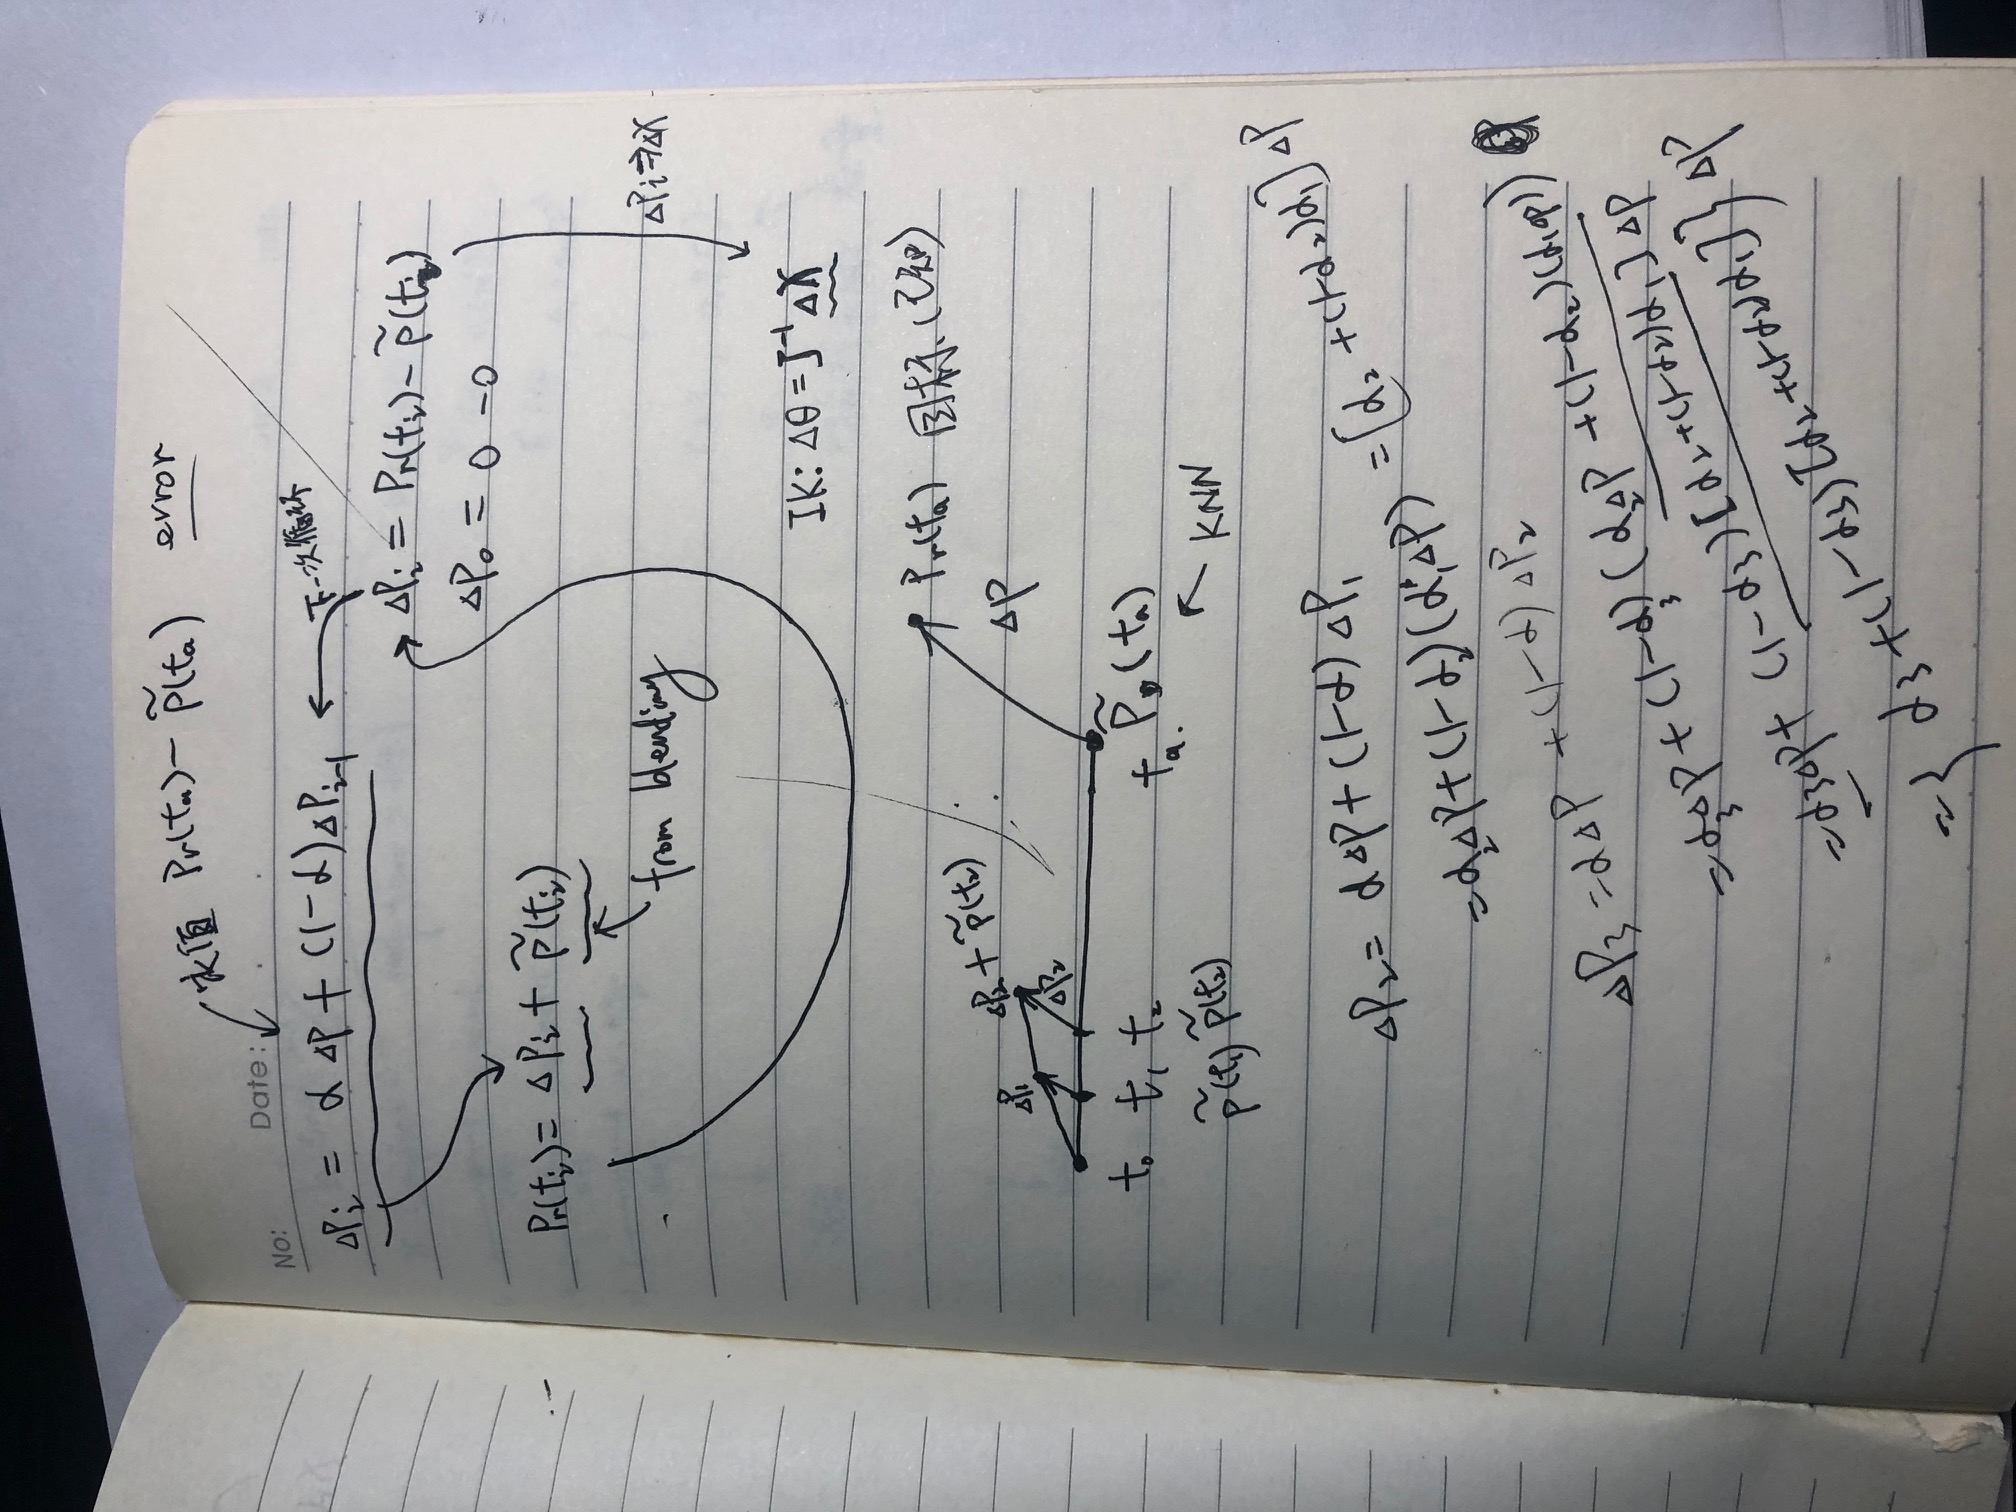 定值 Pr(ta) - p̃(ta) error
No: Date:
ΔPi = α ΔP + (1-α)ΔPi-1
下一次循环
ΔPi = Pr(ti) - p̃(ti)
ΔP0 = 0 - 0
Pr(ti) = ΔPi + p̃(ti)
from blending
ΔPi ⇒ ΔX
IK: Δθ = J⁻¹ ΔX
Pr(ta) 目标 (已知)
ΔP
ΔP2 + p̃(t2)
ΔP1
ΔP2
t0 t1 t2 ta. P̃(ta)
p̃(t1) p̃(t2)
KNN
ΔP2 = αΔP + (1-α) ΔP1
= α2ΔP + (1-α2)(α1ΔP) = [α2 + (1-α2)α1] ΔP
ΔP3 = αΔP + (1-α) ΔP2
= α3ΔP + (1-α3)(α2ΔP + (1-α2)(α1ΔP))
= α3ΔP + (1-α3)[α2+(1-α2)α1] ΔP
= { α3 + (1-α3)[α2+(1-α2)α1] } ΔP